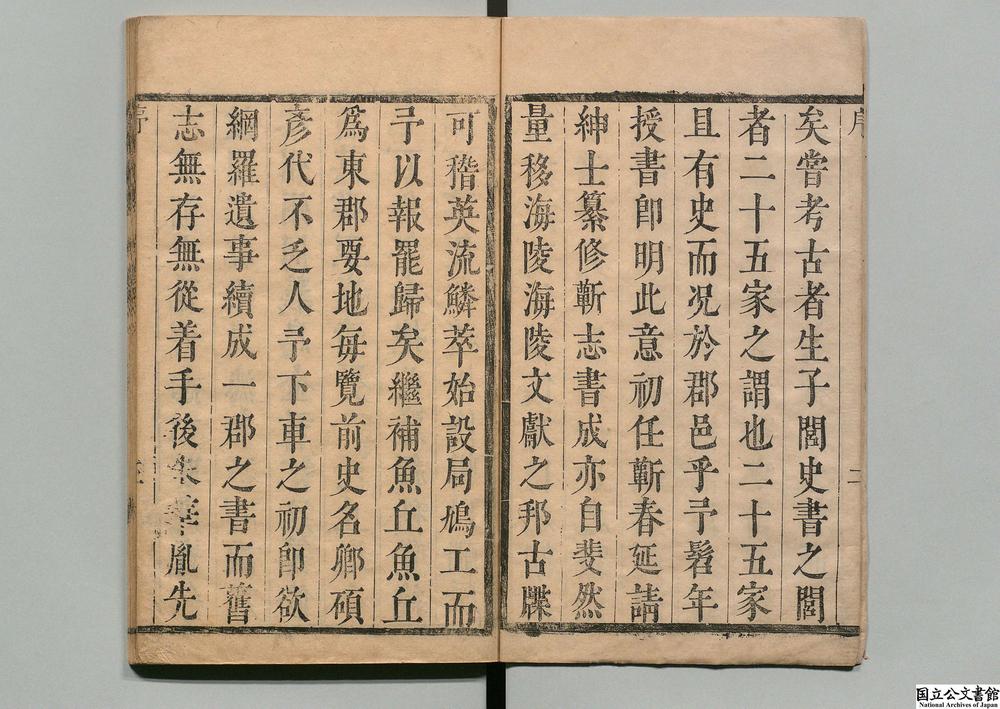 序
二
矣嘗考古者生子閭史書之閭
者二十五家之謂也二十五家
且有史而况於郡邑乎予髫年
授書卽明此意初任蘄春延請
紳士纂修蘄志書成亦自斐然
量移海陵海陵文獻之邦古牒
可稽英流鱗萃始設局鳩工而
予以報罷歸矣繼補魚丘魚丘
爲東郡要地每覽前史名卿碩
彥代不乏人予下車之初卽欲
網羅遺事續成一郡之書而舊
志無存無從着手後朱胤先
序
国立公文書館
National Archives of Japan